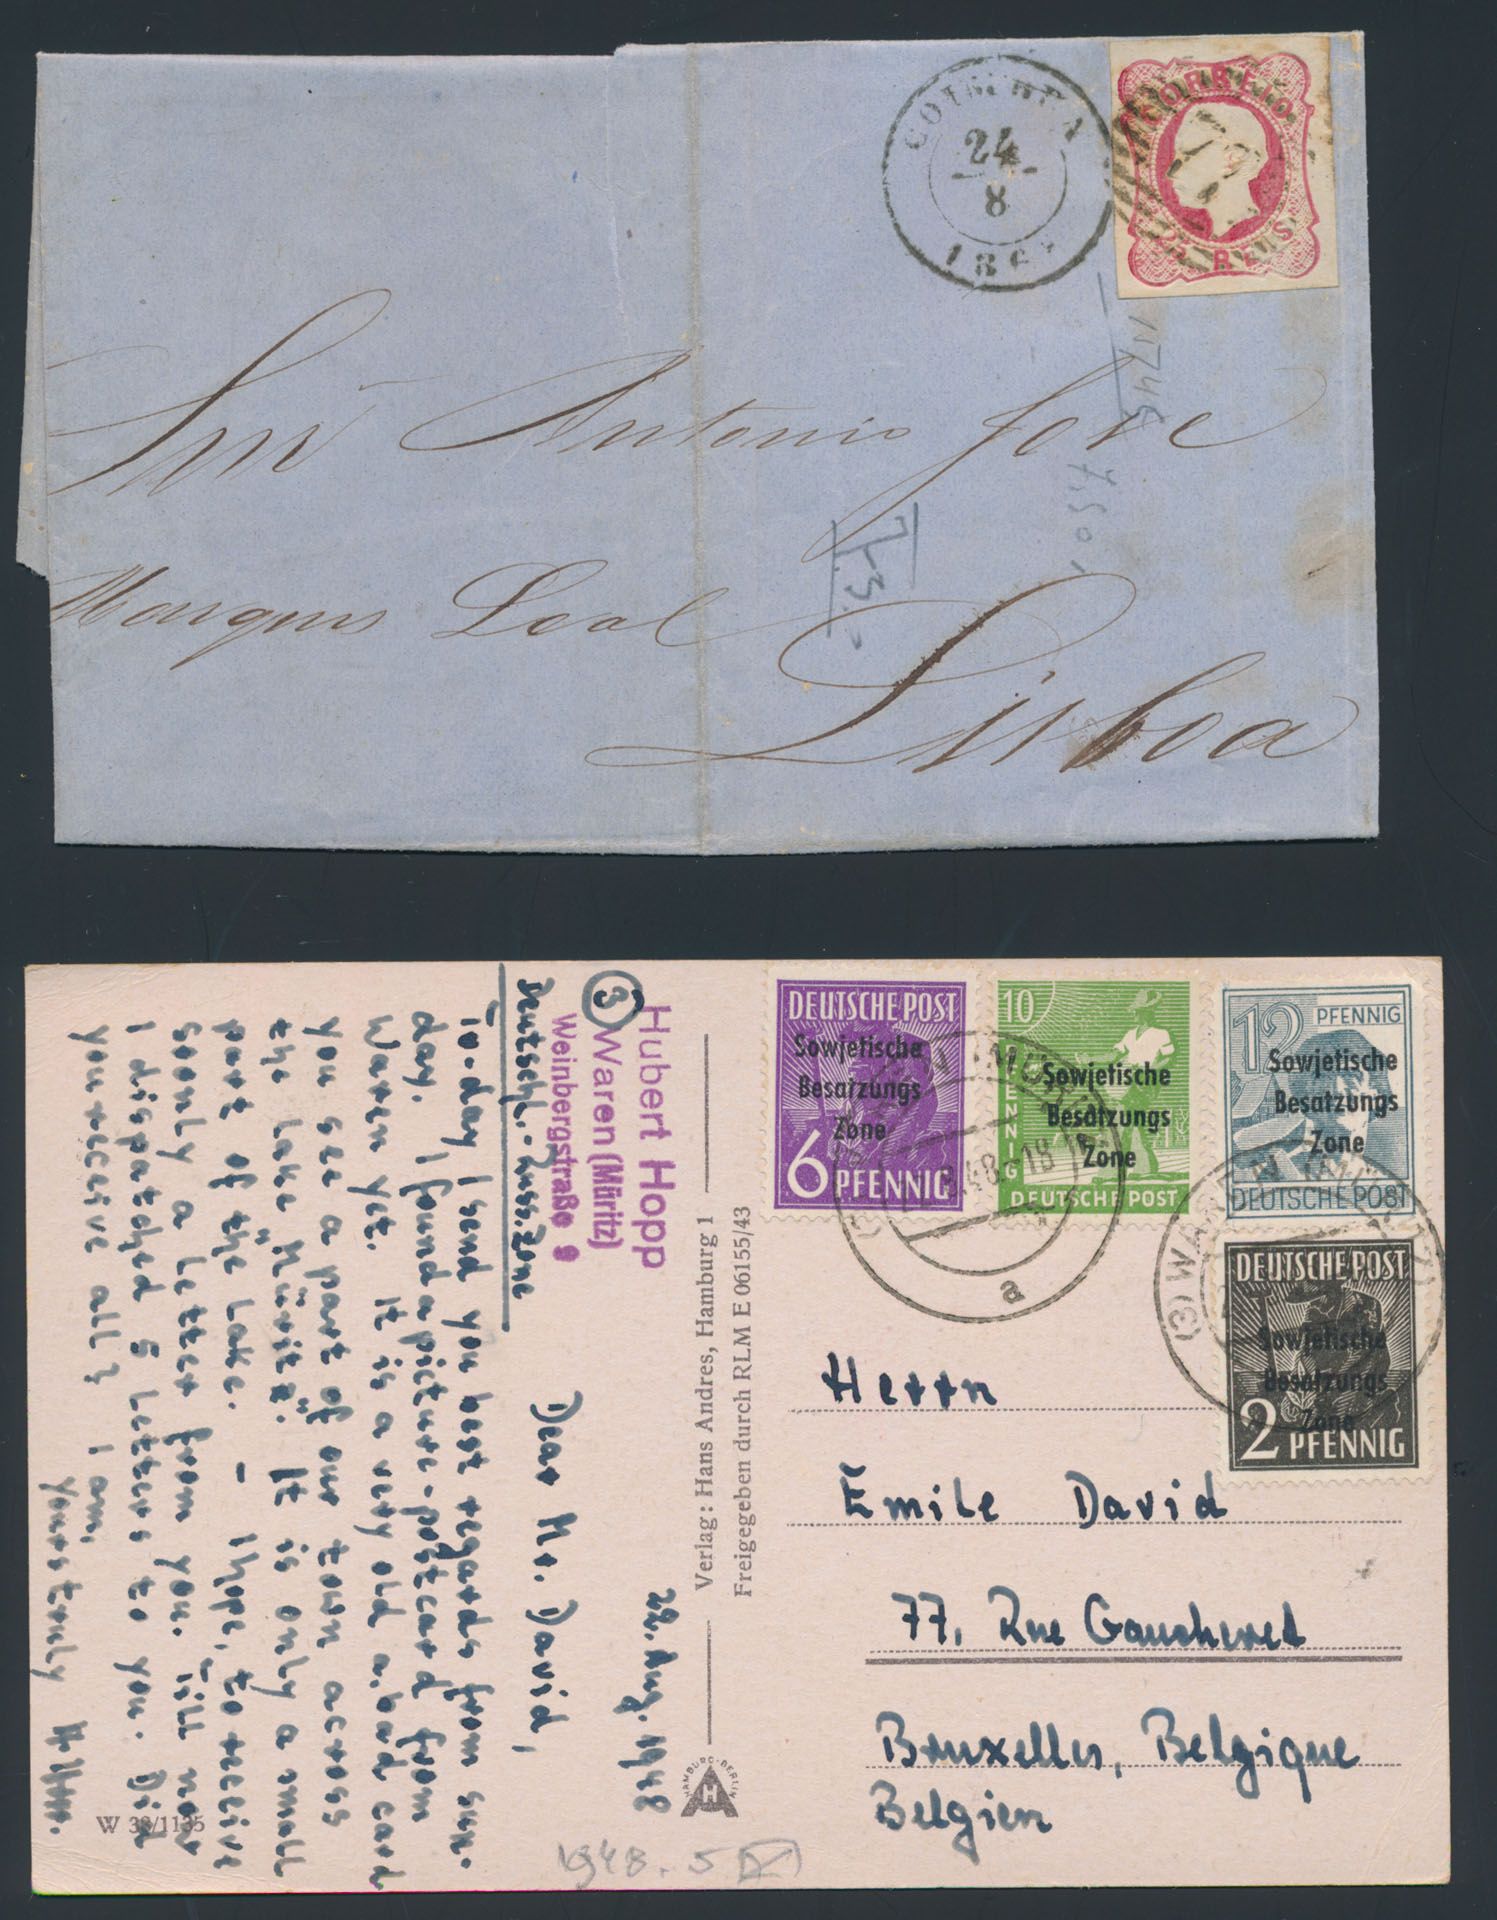 COIMBRA
24
8
186
CORREIO
25 REIS
Snr Antonio Jose
Marques Leal
Lisboa
11745
7,50
DEUTSCHE POST
Sowjetische
Besatzungs
Zone
6 PFENNIG
10
PFENNIG
Sowjetische
Besatzungs
Zone
DEUTSCHE POST
12 PFENNIG
Sowjetische
Besatzungs
Zone
DEUTSCHE POST
DEUTSCHE POST
Sowjetische
Besatzungs
Zone
2 PFENNIG
48-18
a
(3) WAREN (MÜRITZ)
Hubert Hopp
(3) Waren (Müritz)
Weinbergstraße 9
Deutschl.-Russ. Zone
22. Aug. 1948
Dear Mr. David,
To-day I send you best regards from sun-
day. I found a picture-postcard from
Waren yet. It is a very old a. bad card
you see a part of our town across
the lake "Müritz". It is only a small
part of the lake. – I hope, to receive
soonly a letter from you. Till now
I dispatched 5 letters to you. Did
you receive all? I am,
yours truly H. Hopp.
W 38/1135
Verlag: Hans Andres, Hamburg 1
Freigegeben durch RLM E 06155/43
HAMBURG-BERLIN
H
Herrn
Emile David
77, Rue Gaucheret
Bruxelles, Belgique
Belgien
1948. 5